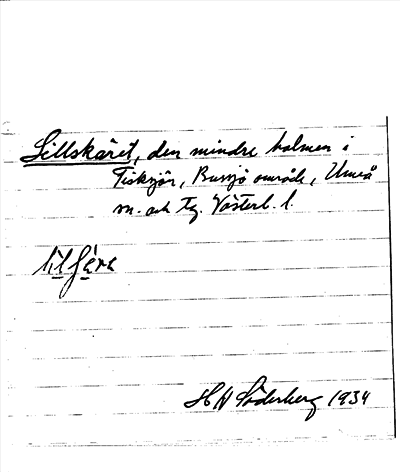 Lillskäret, den mindre holmen i
Fisksjön, Bursjö område, Umeå
sn. och tg. Västerb. l.
H Söderberg 1934